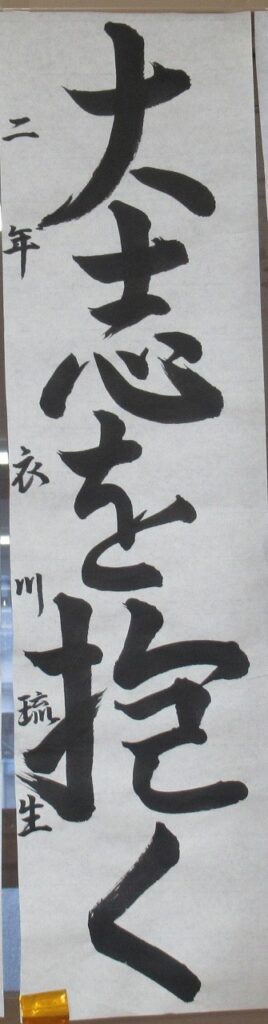 大志を抱く
二年 衣川琉生